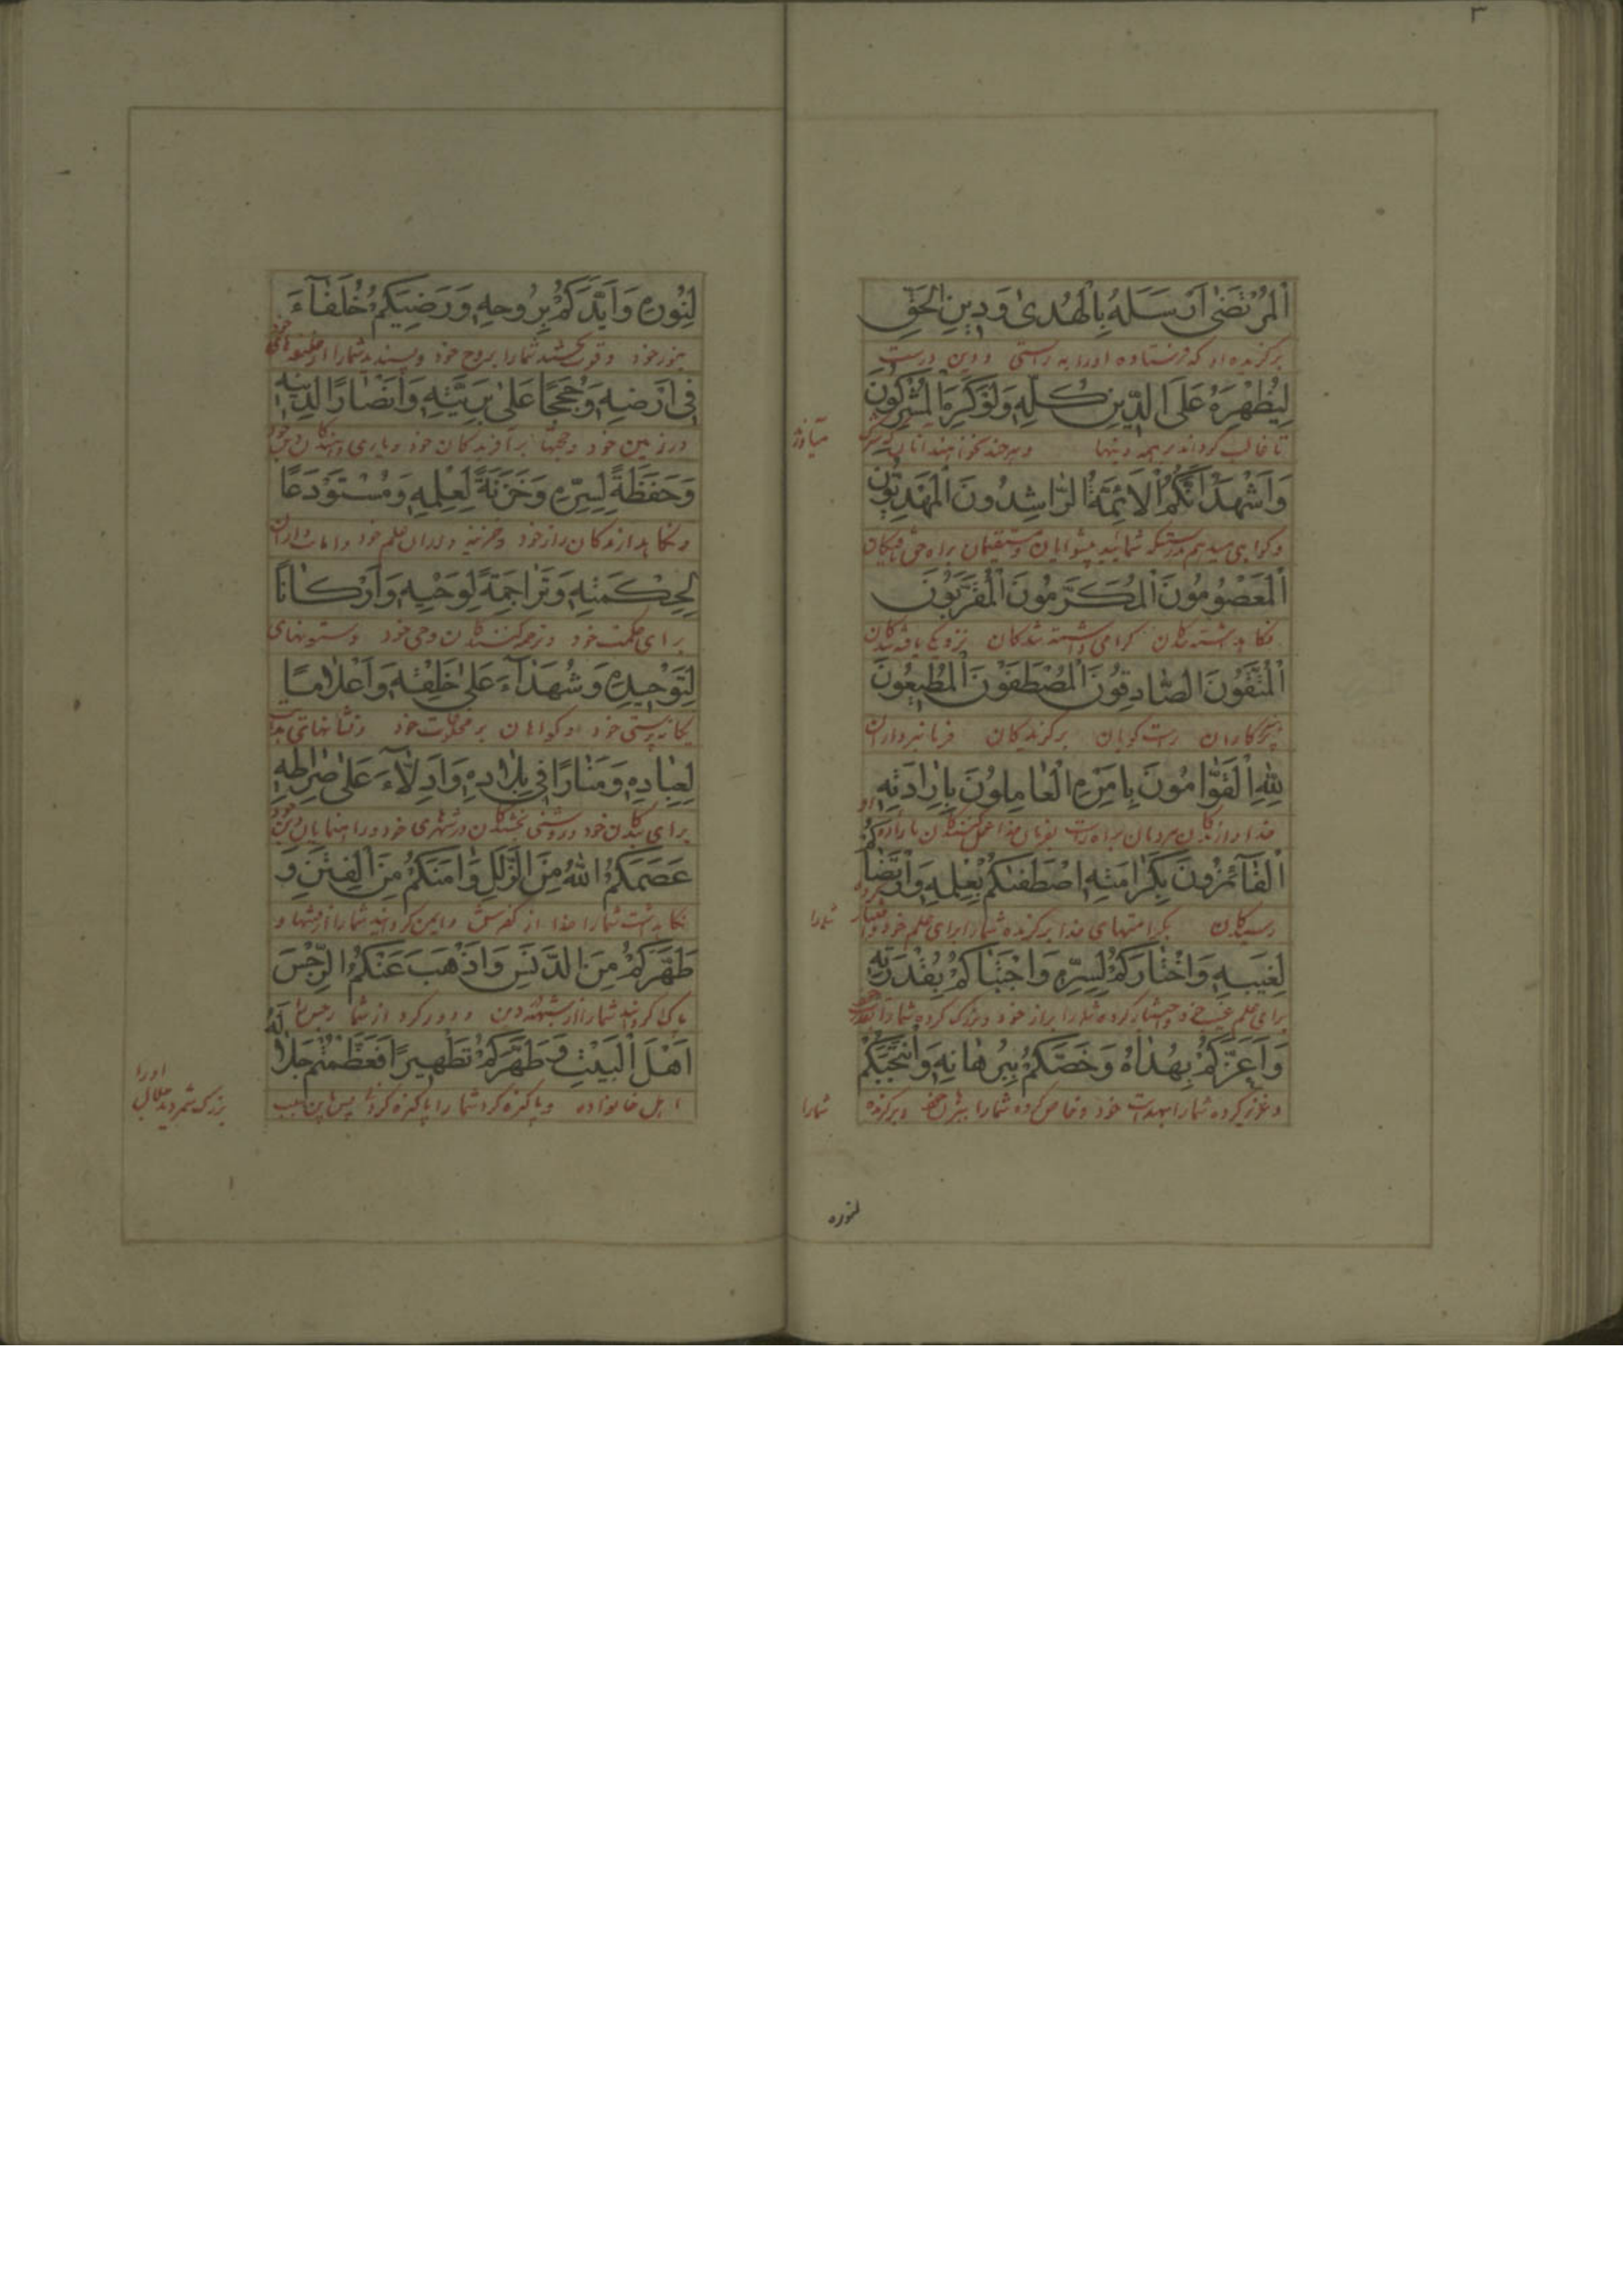 ٣
اَلْمُرْتَضٰى اَرْسَلَهُ بِالْهُدىٰ وَدِينِ الْحَقِّ
برگزیده او که فرستاده او را به راستی و دین درست
لِيُظْهِرَهُ عَلَى الدِّينِ كُلِّهِ وَلَوْكَرِهَ الْمُشْرِكُونَ
تا غالب گرداند بر همه دینها و هر چند نخواهند آنان که شرک
وَاَشْهَدُ اَنَّكُمُ الْاَئِمَّةُ الرَّاشِدُونَ الْمَهْدِيُّونَ
و گواهی میدهم بدرستیکه شمائید پیشوایان
اَلْمَعْصُومُونَ الْمُكَرَّمُونَ الْمُقَرَّبُونَ
نگاه داشته شدگان گرامی داشته شدگان نزدیک یافته شدگان
اَلْمُتَّقُونَ الصَّادِقُونَ الْمُصْطَفَوْنَ الْمُطِيعُونَ
پرهیزکاران راست گویان برگزیدگان فرمانبرداران
لِلّٰهِ الْقَوَّامُونَ بِاَمْرِهِ الْعَامِلُونَ بِاِرَادَتِهِ
اَلْفَآئِزُونَ بِكَرَامَتِهِ اصْطَفٰىكُمْ بِعِلْمِهِ وَارْتَضَاكُمْ
رسیدگان بکرامتهای خدا برگزیده شما را برای علم خود
شما را
لِغَيْبِهِ وَاخْتَارَكُمْ لِسِرِّهِ وَاجْتَبَاكُمْ بِقُدْرَتِهِ
وَاَعَزَّكُمْ بِهُدَاهُ وَخَصَّكُمْ بِبُرْهَانِهِ وَانْتَجَبَكُمْ
و عزیز کرده شما را بهدایت خود و خاص کرده شما را و برگزیده
شما را
لنوره
لِنُورِهِ وَاَيَّدَكُمْ بِرُوحِهِ وَرَضِيَكُمْ خُلَفَآءَ
بنور خود و قوت بخشید شما را بروح خود و پسندید شما را
فِى اَرْضِهِ وَحُجَجًا عَلىٰ بَرِيَّتِهِ وَاَنْصَارًا لِدِينِهِ
در زمین خود و حجتها بر آفریدگان خود و یاری دهندگان
وَحَفَظَةً لِسِرِّهِ وَخَزَنَةً لِعِلْمِهِ وَمُسْتَوْدَعًا
و نگاهدارندگان راز خود و خزینه داران علم خود و امانت داران
لِحِكْمَتِهِ وَتَرَاجِمَةً لِوَحْيِهِ وَاَرْكَانًا
برای حکمت خود و ترجمه کنندگان وحی خود و ستونهای
لِتَوْحِيدِهِ وَشُهَدَآءَ عَلىٰ خَلْقِهِ وَاَعْلَامًا
یگانه پرستی خود و گواهان بر مخلوقات خود و نشانهای
لِعِبَادِهِ وَمَنَارًا فِى بِلَادِهِ وَاَدِلَّآءَ عَلىٰ صِرَاطِهِ
برای بندگان خود و روشنی بخشندگان در شهرهای خود و راهنمایان
عَصَمَكُمُ اللّٰهُ مِنَ الزَّلَلِ وَاٰمَنَكُمْ مِنَ الْفِتَنِ وَ
نگاه داشت شما را خدا از لغزش و ایمن گردانید شما را از فتنها و
طَهَّرَكُمْ مِنَ الدَّنَسِ وَاَذْهَبَ عَنْكُمُ الرِّجْسَ
پاک گردانید شما را از و دور کرد از شما رجس را
اَهْلَ الْبَيْتِ وَطَهَّرَكُمْ تَطْهِيرًا فَعَظَّمْتُمْ جَلَالَهُ
اهل خانواده و پاکیزه کرد شما را پاکیزه کردنی پس
بزرگ شمردید جلال او را